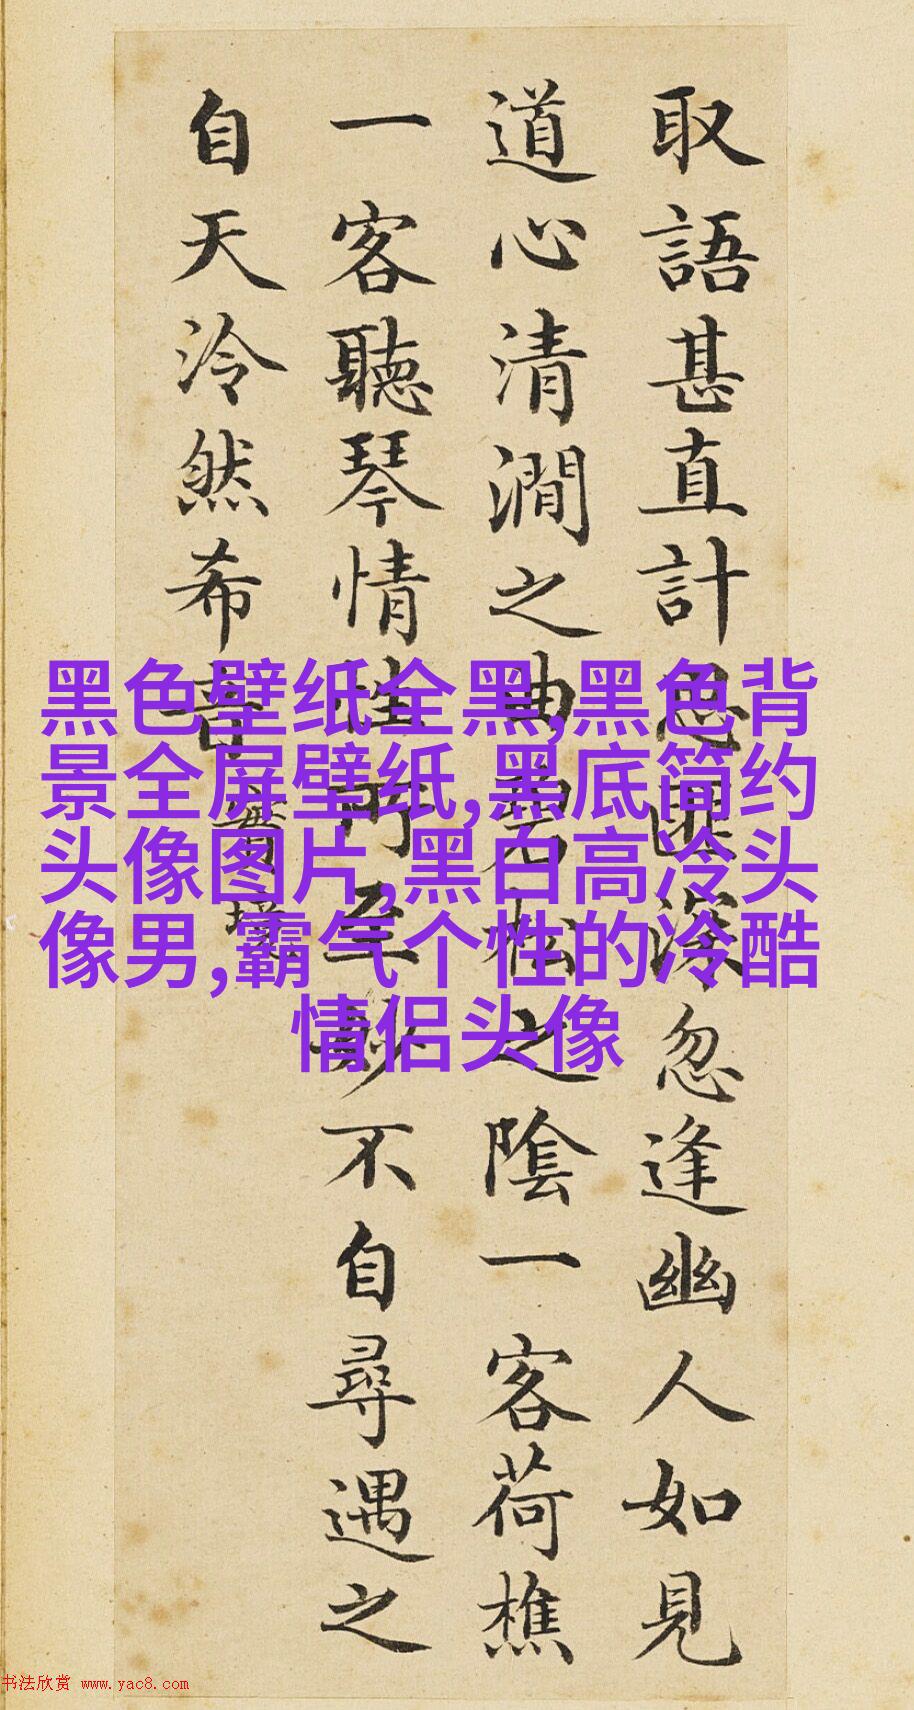 取語甚直計思匪深忽逢幽人如見
道心清澗之曲碧松之陰一客荷樵
一客聽琴情性所至妙不自尋遇之
自天泠然希音
實境
黑色壁纸全黑,黑色背
景全屏壁纸,黑底简约
头像图片,黑白高冷头
像男,霸气个性的冷酷
情侣头像
书法欣赏 www.yac8.com